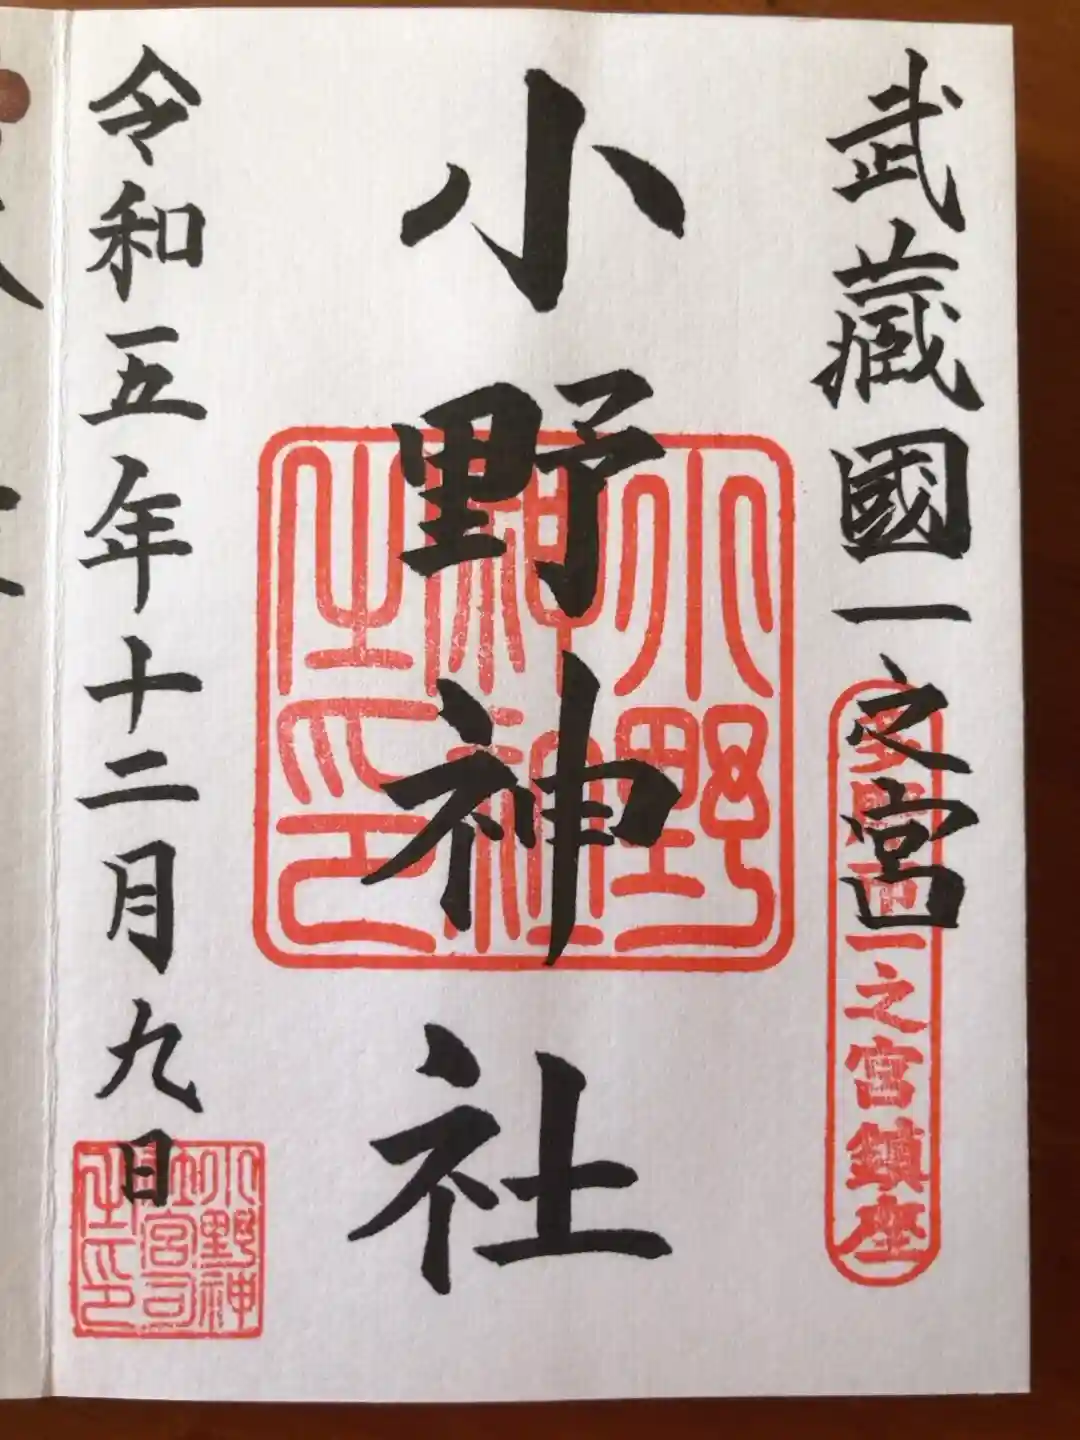 武藏國一之宮
多摩市一之宮鎮座
小野神社
小野神社之印
令和五年十二月九日
小野神社宮司之印